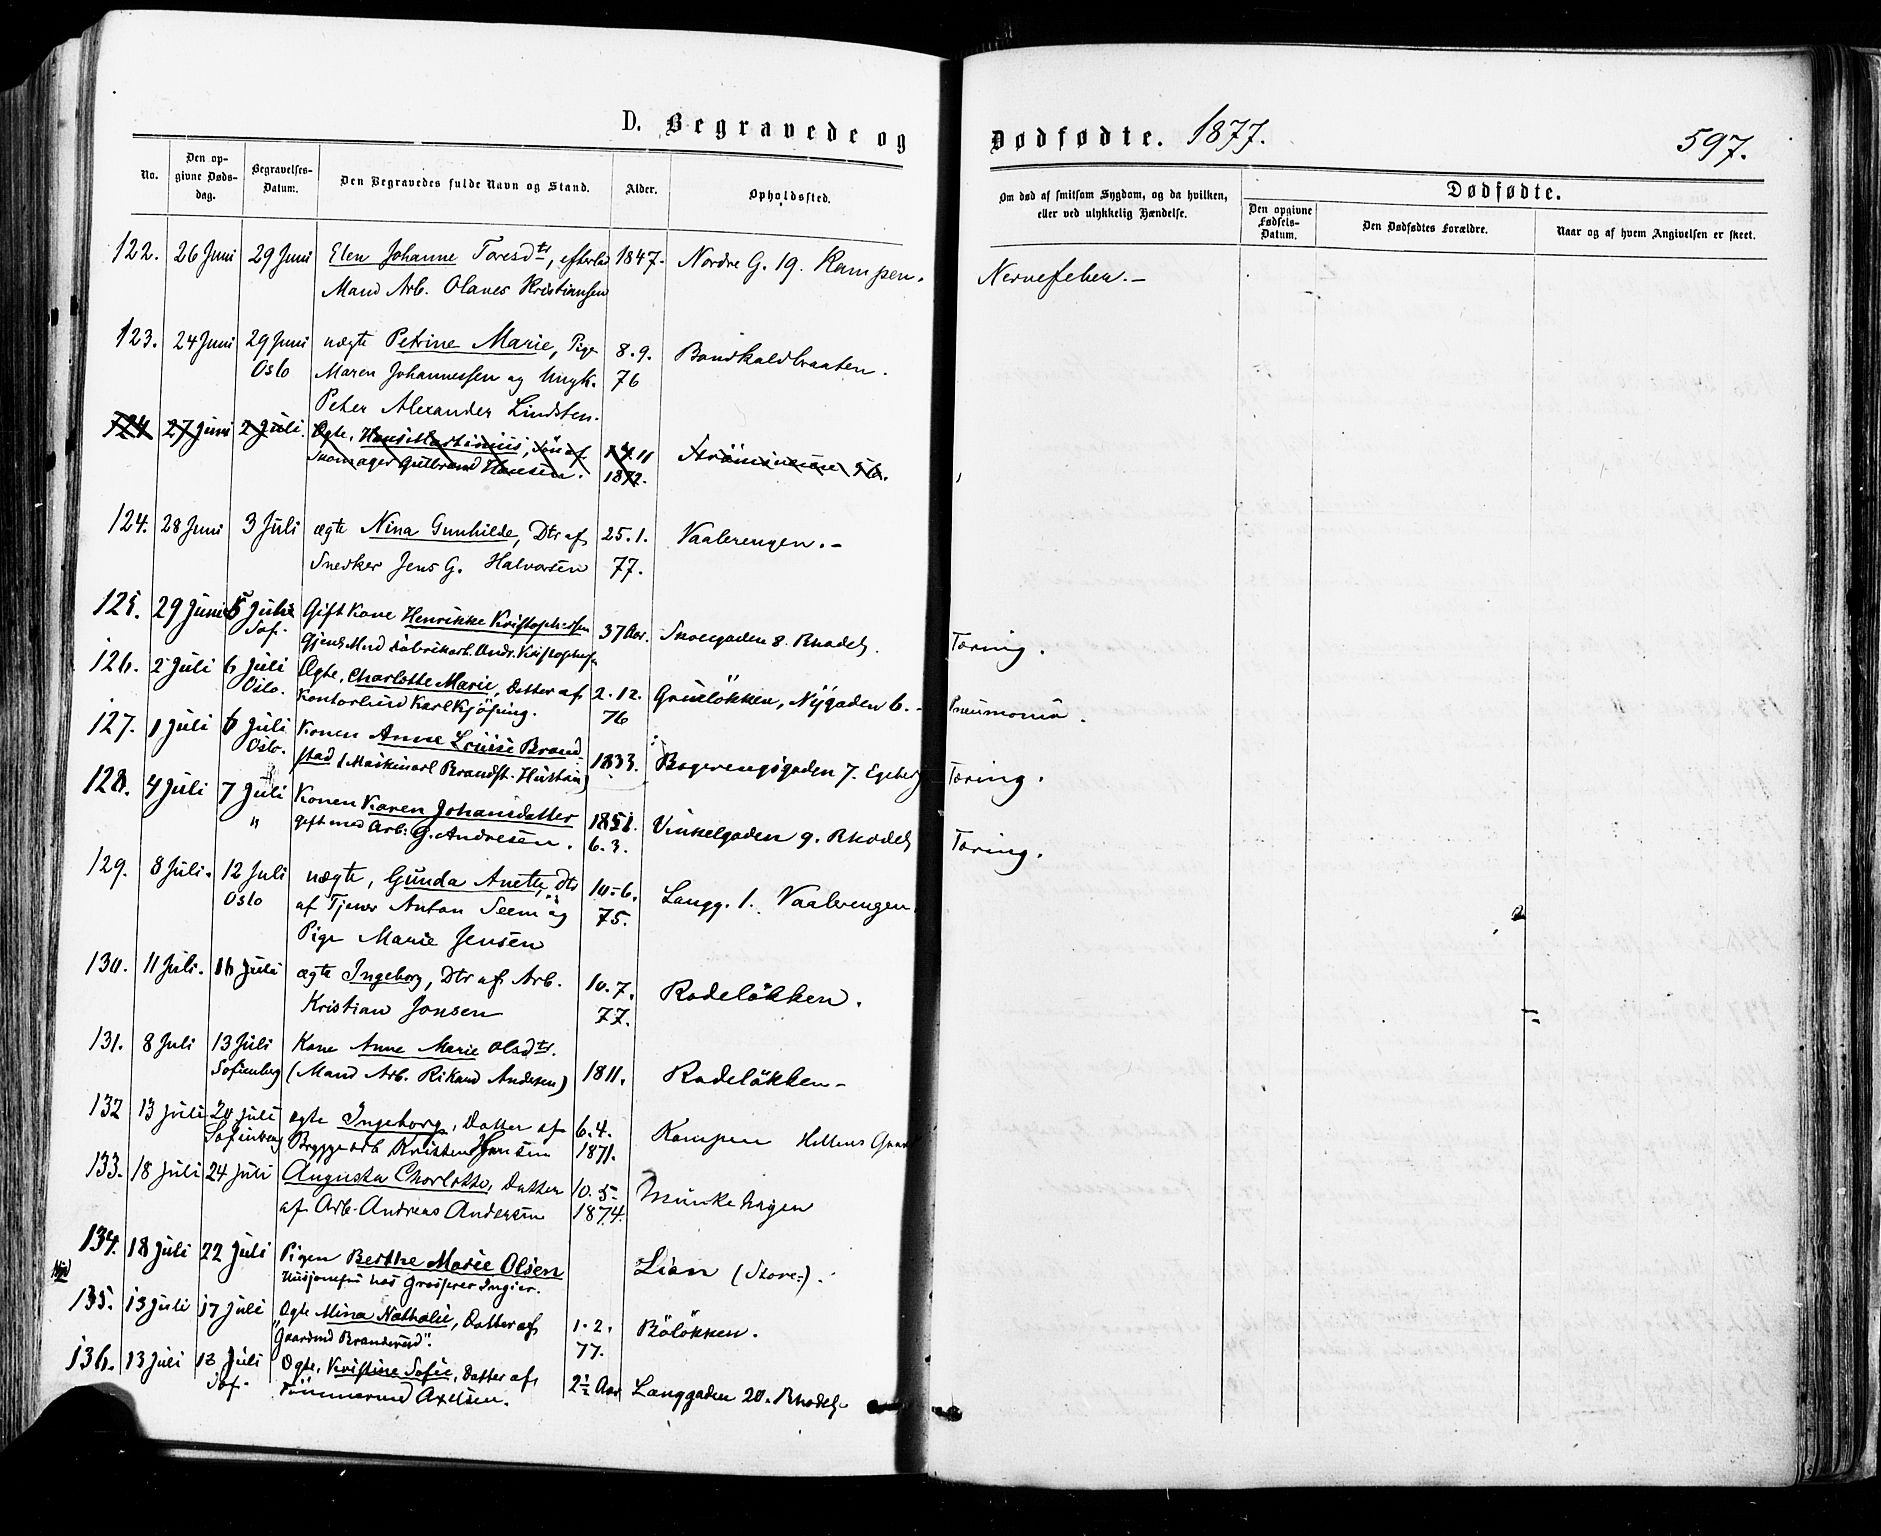 D. Begravede og Dødfødte. 1877. 597.
No. Den opgivne Dødsdag. Begravelses-Datum. Den Begravedes fulde Navn og Stand. Alder. Opholdssted. Om død af smitsom Sygdom, og da hvilken, eller ved ulykkelig Hændelse. Dødfødte.
Den opgivne Fødsels-Datum. Den Dødfødtes Forældre. Naar og af hvem Angivelsen er skeet.
122. 26 Juni 29 Juni Elen Johanne Toresdtr, efterlad 1847. Nordre G. 19. Kampen. Nervefeber.-
Mand Arb. Olaves Kristiansen
123. 24 Juni 29 Juni uægte Petrine Marie, Pige 8.9. Bandkaldbraaten.
Oslo Maren Johannessen og Ungk. 76
Peter Alexander Lindsten.
124 27 Juni 2 Juli. Ægte, Hans Martinius, Søn af 14.11
Skomager Gulbrand Hansen. 1872.
124. 28 Juni 3 Juli ægte Nina Gunhilde, Dtr af 25.1. Vaalerengen.-
Snedker Jens G. Halvorsen 77.
125. 29 Juni 5 Juli Gift Kone Henrikke Kristophersen 37 Aar. Skoegaden 8. Rhodel. Tæring.
Sof. Gjenl. Md Fabrikarb. Andr. Kristophers.
126. 2 Juli 6 Juli Ægte, Charlotte Marie, Datter af 2.12. Grüneløkken, Nygaden 6. - Pneumonia.
Oslo. Kontorbud Karl Kjøsing. 76
127. 1 Juli 6 Juli Konen Anne Louise Brand- 1833. Bøgerengsgaden 7. Egeberg Tæring.
Oslo. stad (Maskinarb Brandst. Hustru)
128. 4 Juli 7 Juli Konen Karen Johansdatter 1851. Vinkelgaden 9. Rhodel Tæring.
" gift med Arb: G. Andresen. 6.3.
129. 8 Juli. 12 Juli uægte, Gunda Anette, Dtr 10.6. Langg. 1. Vaalerengen.
Oslo af Tjener Anton Seem og 75.
Pige Marie Jensen
130. 11 Juli. 16 Juli ægte Ingeborg, Dtr af Arb. 10.7. Rodeløkken.
Kristian Jonsen 77.
131. 8 Juli 13 Juli Kone Anne Marie Olsdtr. 1811. Rodeløkken-
Sofienberg (Mand Arb. Rikard Andersen)
132 13 Juli 20 Juli ægte Ingeborg, Datter af 6.4. Kampen Hellens Gaard
Sofienberg Bryggearb Kristen Hansen 1871.
133. 18 Juli 24 Juli Augusta Charlotte, Datter 10.5. Munkehagen
af Arb. Andreas Andersen 1874.
134. 18 Juli 22 Juli Pigen Berthe Marie Olsen Lian (Store-).
Husjomfru hos Grosserer Ingier.
135. 13 Juli 17 Juli Ægte Mina Nathalie, Datter af 1.2. Bøløkken.
Gaardmd Branderud". 77.
136. 13 Juli 18 Juli Ægte, Kristine Sofie, Datter af 2½ Aar Langgaden 20. Rhodel.
Sof. Tømmermd Axelsen.